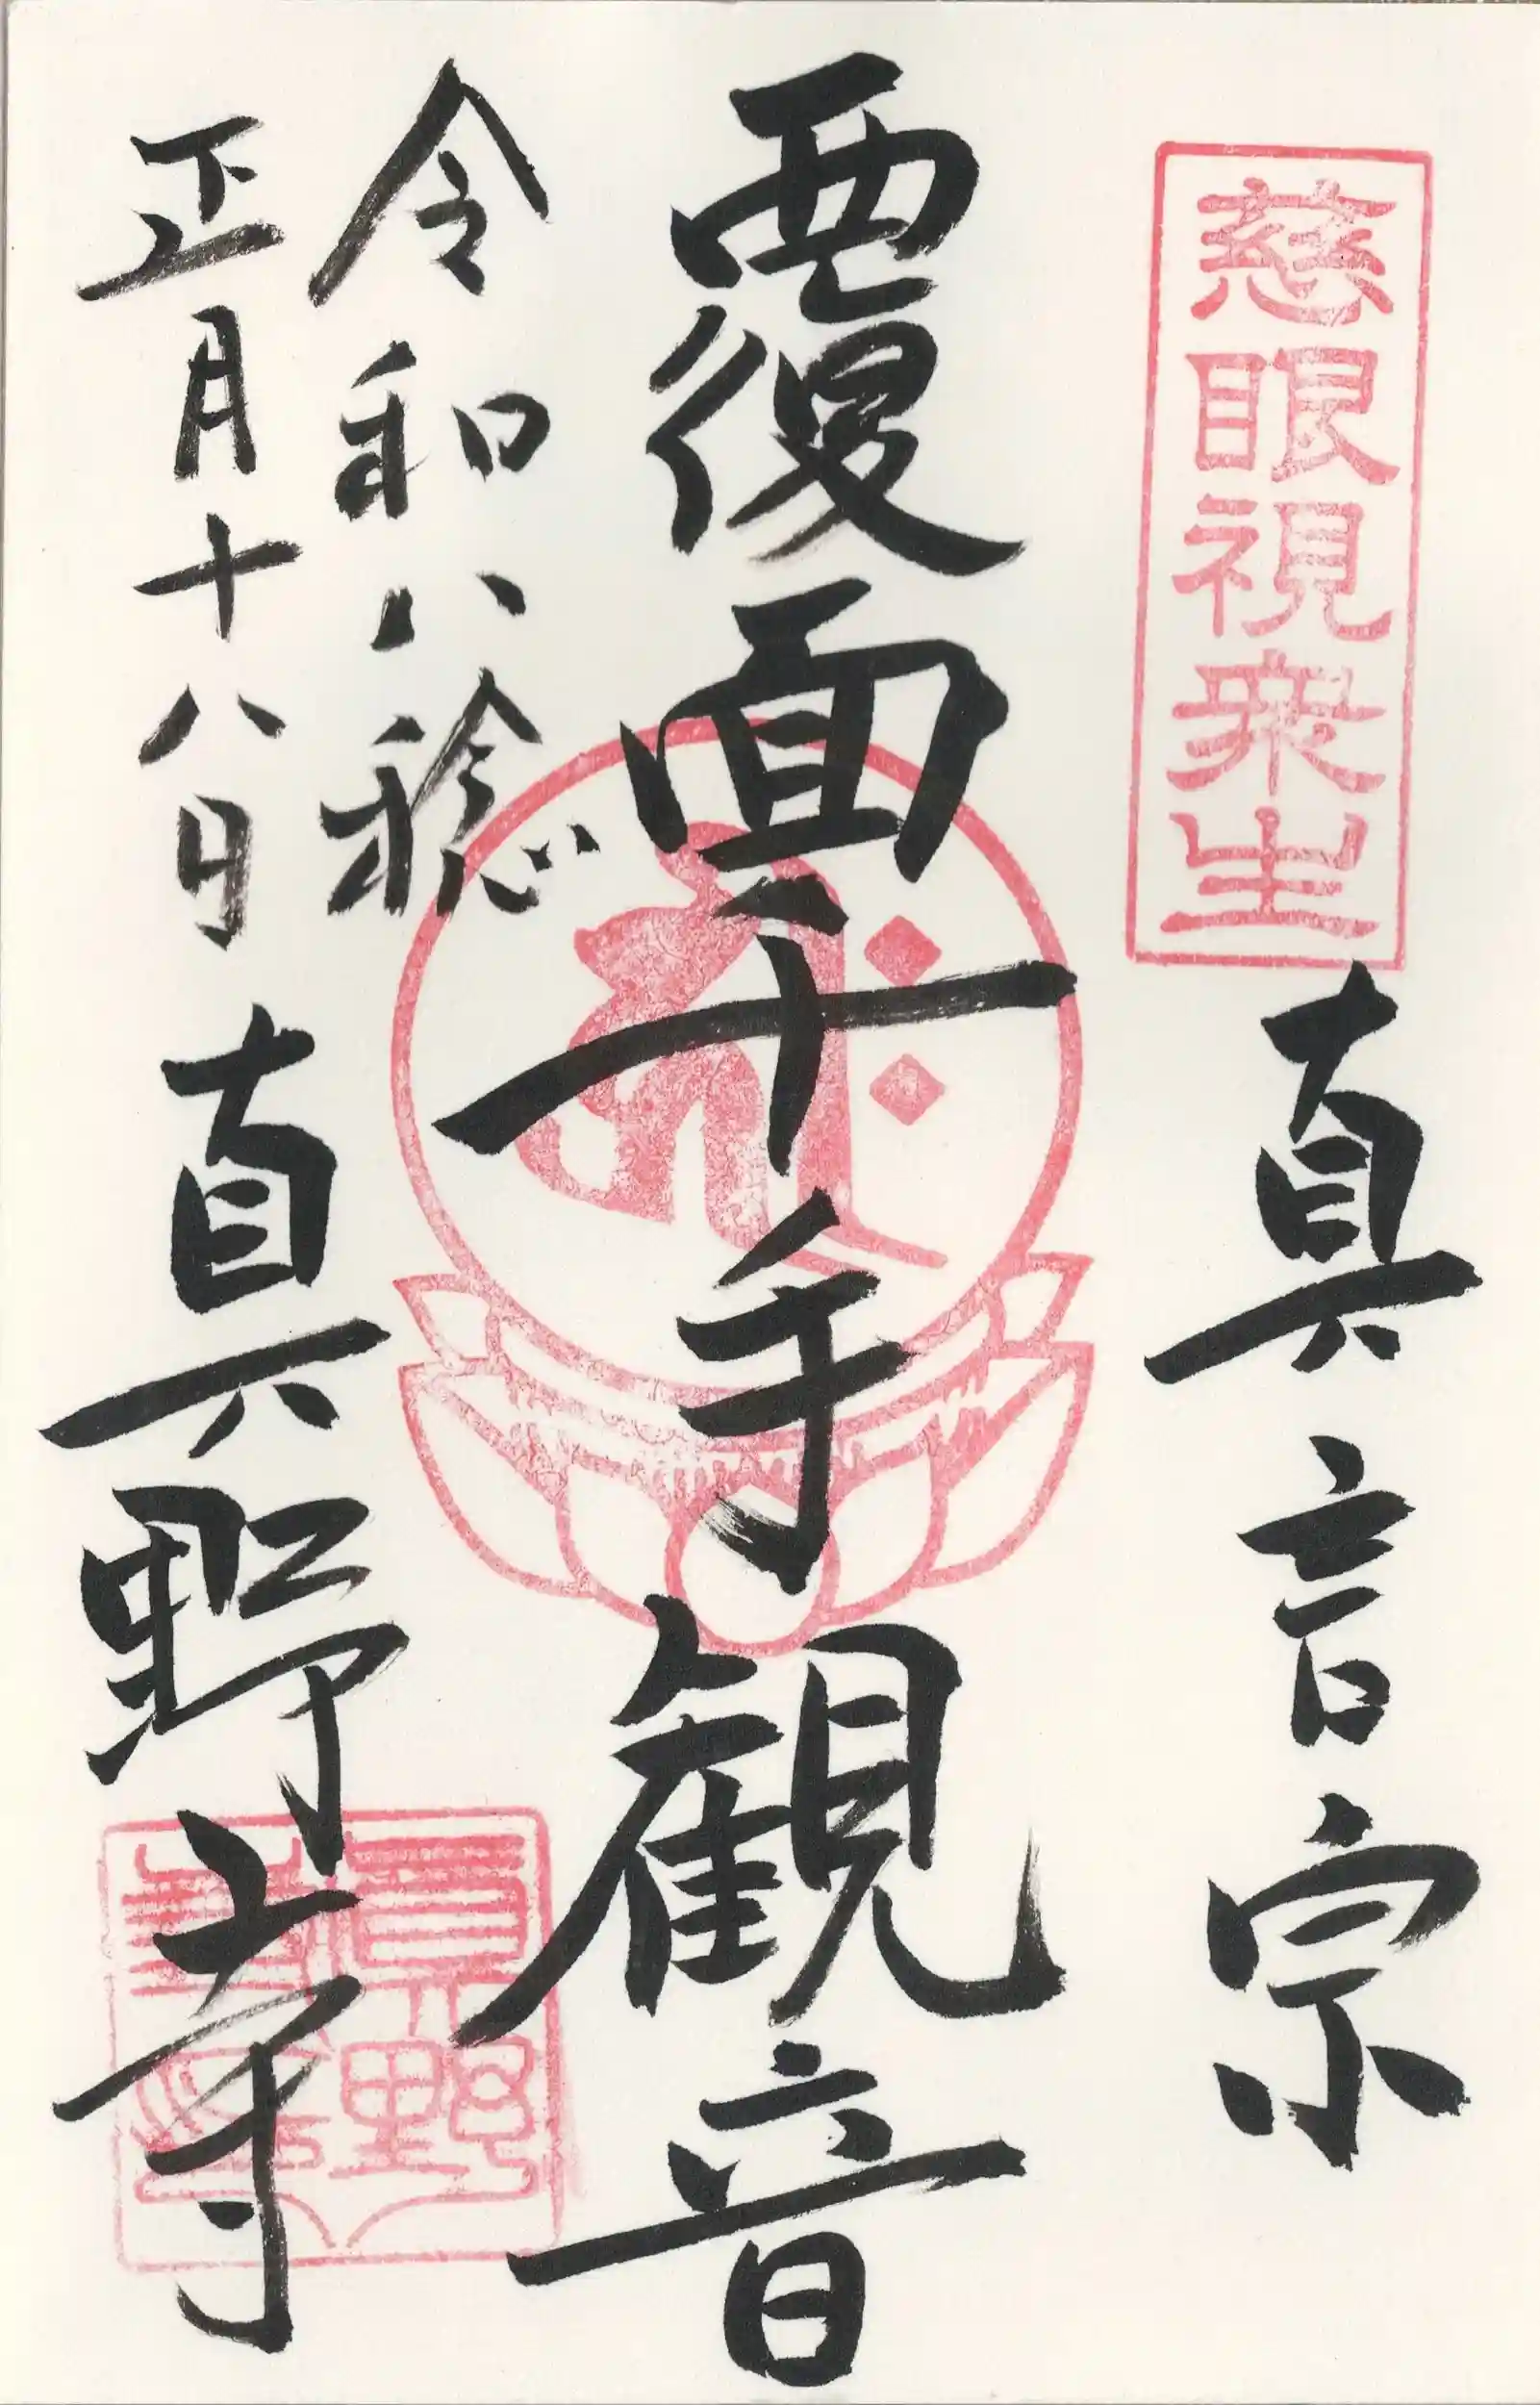 慈眼視衆生
真言宗
覆面千手観音
令和八稔
正月十八日 真野寺